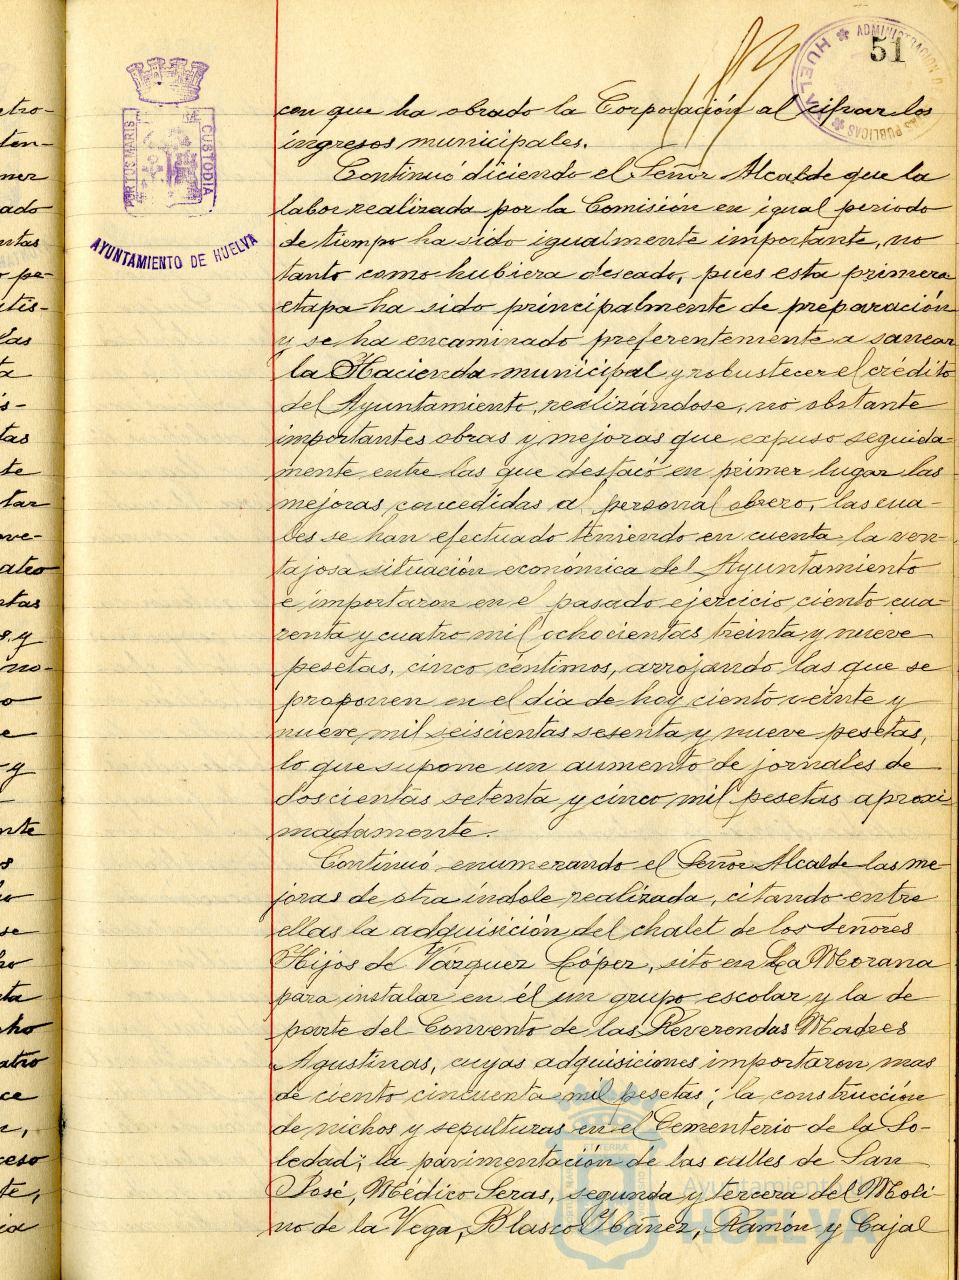 51
ADMINISTRACION D
AS PUBLICAS
HUELVA
PORTUS MARIS
CUSTODIA
AYUNTAMIENTO DE HUELVA
con que ha obrado la Corporación al cifrar los
ingresos municipales.
Continuó diciendo el Señor Alcalde que la
labor realizada por la Comisión en igual periodo
de tiempo ha sido igualmente importante, no
tanto como hubiera deseado, pues esta primera
etapa ha sido principalmente de preparación
y se ha encaminado preferentemente a sanear
la Hacienda municipal y robustecer el crédito
del Ayuntamiento, realizándose, no obstante
importantes obras y mejoras que expuso seguida-
mente entre las que destacó en primer lugar las
mejoras concedidas al personal obrero, las cua-
les se han efectuado teniendo en cuenta la ven-
tajosa situación económica del Ayuntamiento
e importaron en el pasado ejercicio ciento cua-
renta y cuatro mil ochocientas treinta y nueve
pesetas, cinco céntimos, arrojando las que se
proponen en el día de hoy ciento veinte y
nueve mil seiscientas sesenta y nueve pesetas,
lo que supone un aumento de jornales de
doscientas setenta y cinco mil pesetas aproxi-
madamente.
Continuó enumerando el Señor Alcalde las me-
joras de otra índole realizada, citando entre
ellas la adquisición del chalet de los señores
Hijos de Vázquez López, sito en La Morana
para instalar en él un grupo escolar y la de
parte del Convento de las Reverendas Madres
Agustinas, cuyas adquisiciones importaron mas
de ciento cincuenta mil pesetas; la construcción
de nichos y sepulturas en el Cementerio de la So-
ledad; la pavimentación de las calles de San
José, Médico Seras, segunda y tercera del Moli-
no de la Vega, Blasco Ibáñez, Ramon y Cajal
Ayuntamiento de
HUELVA